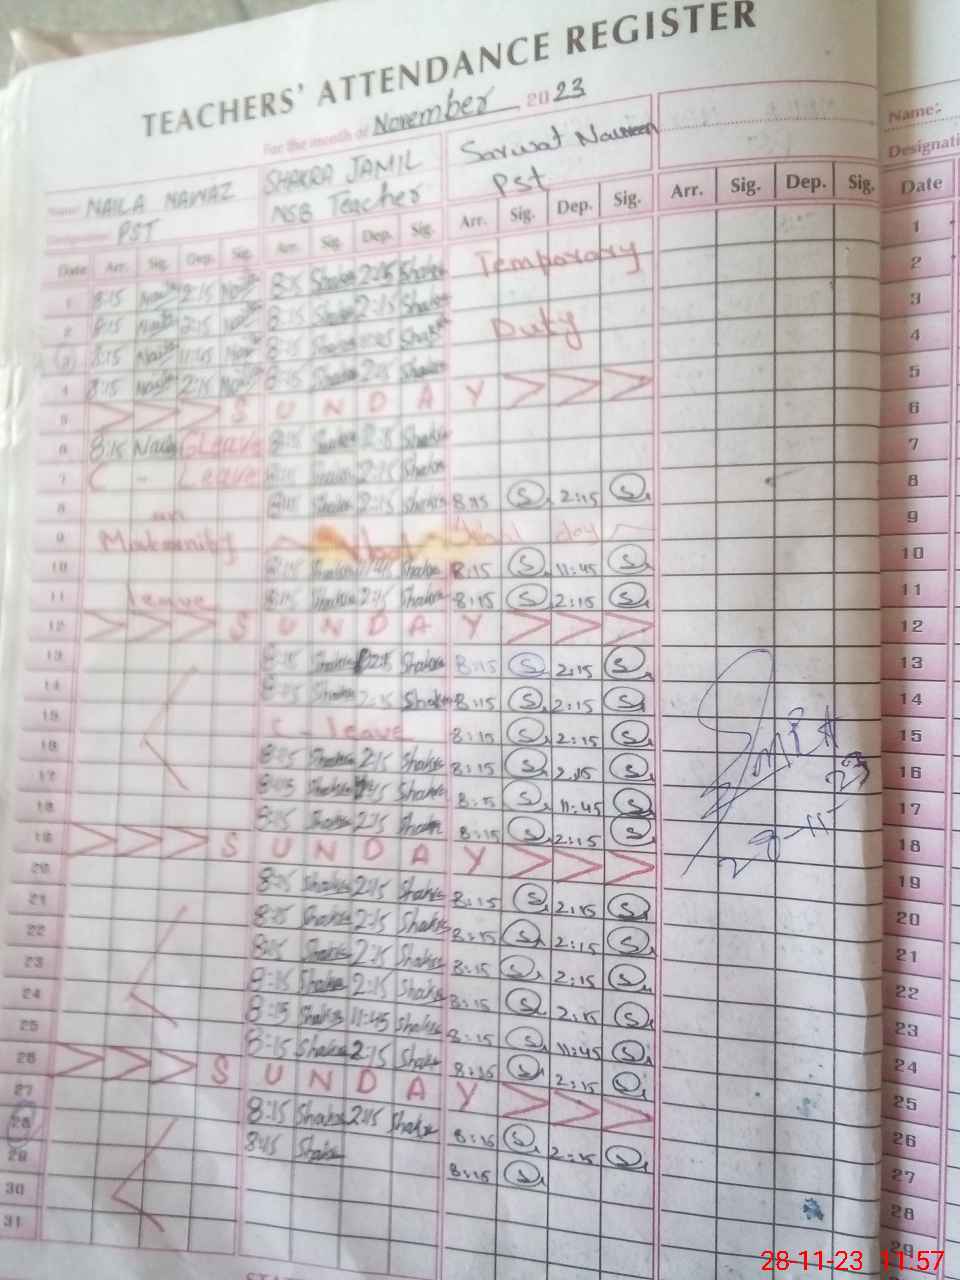 TEACHERS' ATTENDANCE REGISTER
For the month of November 2023
Name: NAILA NAWAZ SHAKRA JAMIL Sarwat Naureen Name:-
Designation PST NSB Teacher Pst Designati
Date Arr. Sig. Dep. Sig. Arr. Sig. Dep. Sig. Arr. Sig. Dep. Sig. Arr. Sig. Dep. Sig. Date
1 8:15 2:15 8:15 2:15 Temporary 1
2 8:15 2:15 8:15 2:15 2
3 8:15 11:45 8:15 Duty 3
4 8:15 2:15 8:15 2:15 4
5 S U N D A Y 5
6 8:15 Naila C Leave 8:15 Shakra 2:15 Shakra 6
7 C - Leave 8:15 2:15 Shakra 7
8 8:15 Shakra 2:15 Shakra 8:15 S 2:15 S 8
9 on Maternity day 9
10 8:15 Shakra 11:45 Shakra 8:15 S 11:45 S 10
11 leave 8:15 Shakra 2:15 Shakra 8:15 S 2:15 S 11
12 S U N D A Y 12
13 8:15 Shakra 2:15 Shakra 8:15 S 2:15 S 13
14 8:15 Shakra 2:15 Shakra 8:15 S 2:15 S 14
15 C - leave 8:15 S 2:15 S 15
16 8:15 Shakra 2:15 Shakra 8:15 S 2:15 S 16
17 8:15 Shakra Shakra 8:15 S 11:45 S 17
18 8:15 Shakra 2:15 Shakra 8:15 S 2:15 S 18
28-11-23
19 S U N D A Y 19
20 8:15 Shakra 2:15 Shakra 8:15 S 2:15 S 20
21 8:15 Shakra 2:15 Shakra 8:15 S 2:15 S 21
22 8:15 Shakra 2:15 Shakra 8:15 S 2:15 S 22
23 8:15 Shakra 2:15 Shakra 8:15 S 2:15 S 23
24 8:15 Shakra 11:45 Shakra 8:15 S 11:45 S 24
25 8:15 Shakra 2:15 Shakra 8:15 S 2:15 S 25
26 S U N D A Y 26
27 8:15 Shakra 2:15 Shakra 8:15 S 2:15 S 27
28 8:15 Shakra 8:15 S 28
29 29
30
31
28-11-23 11:57